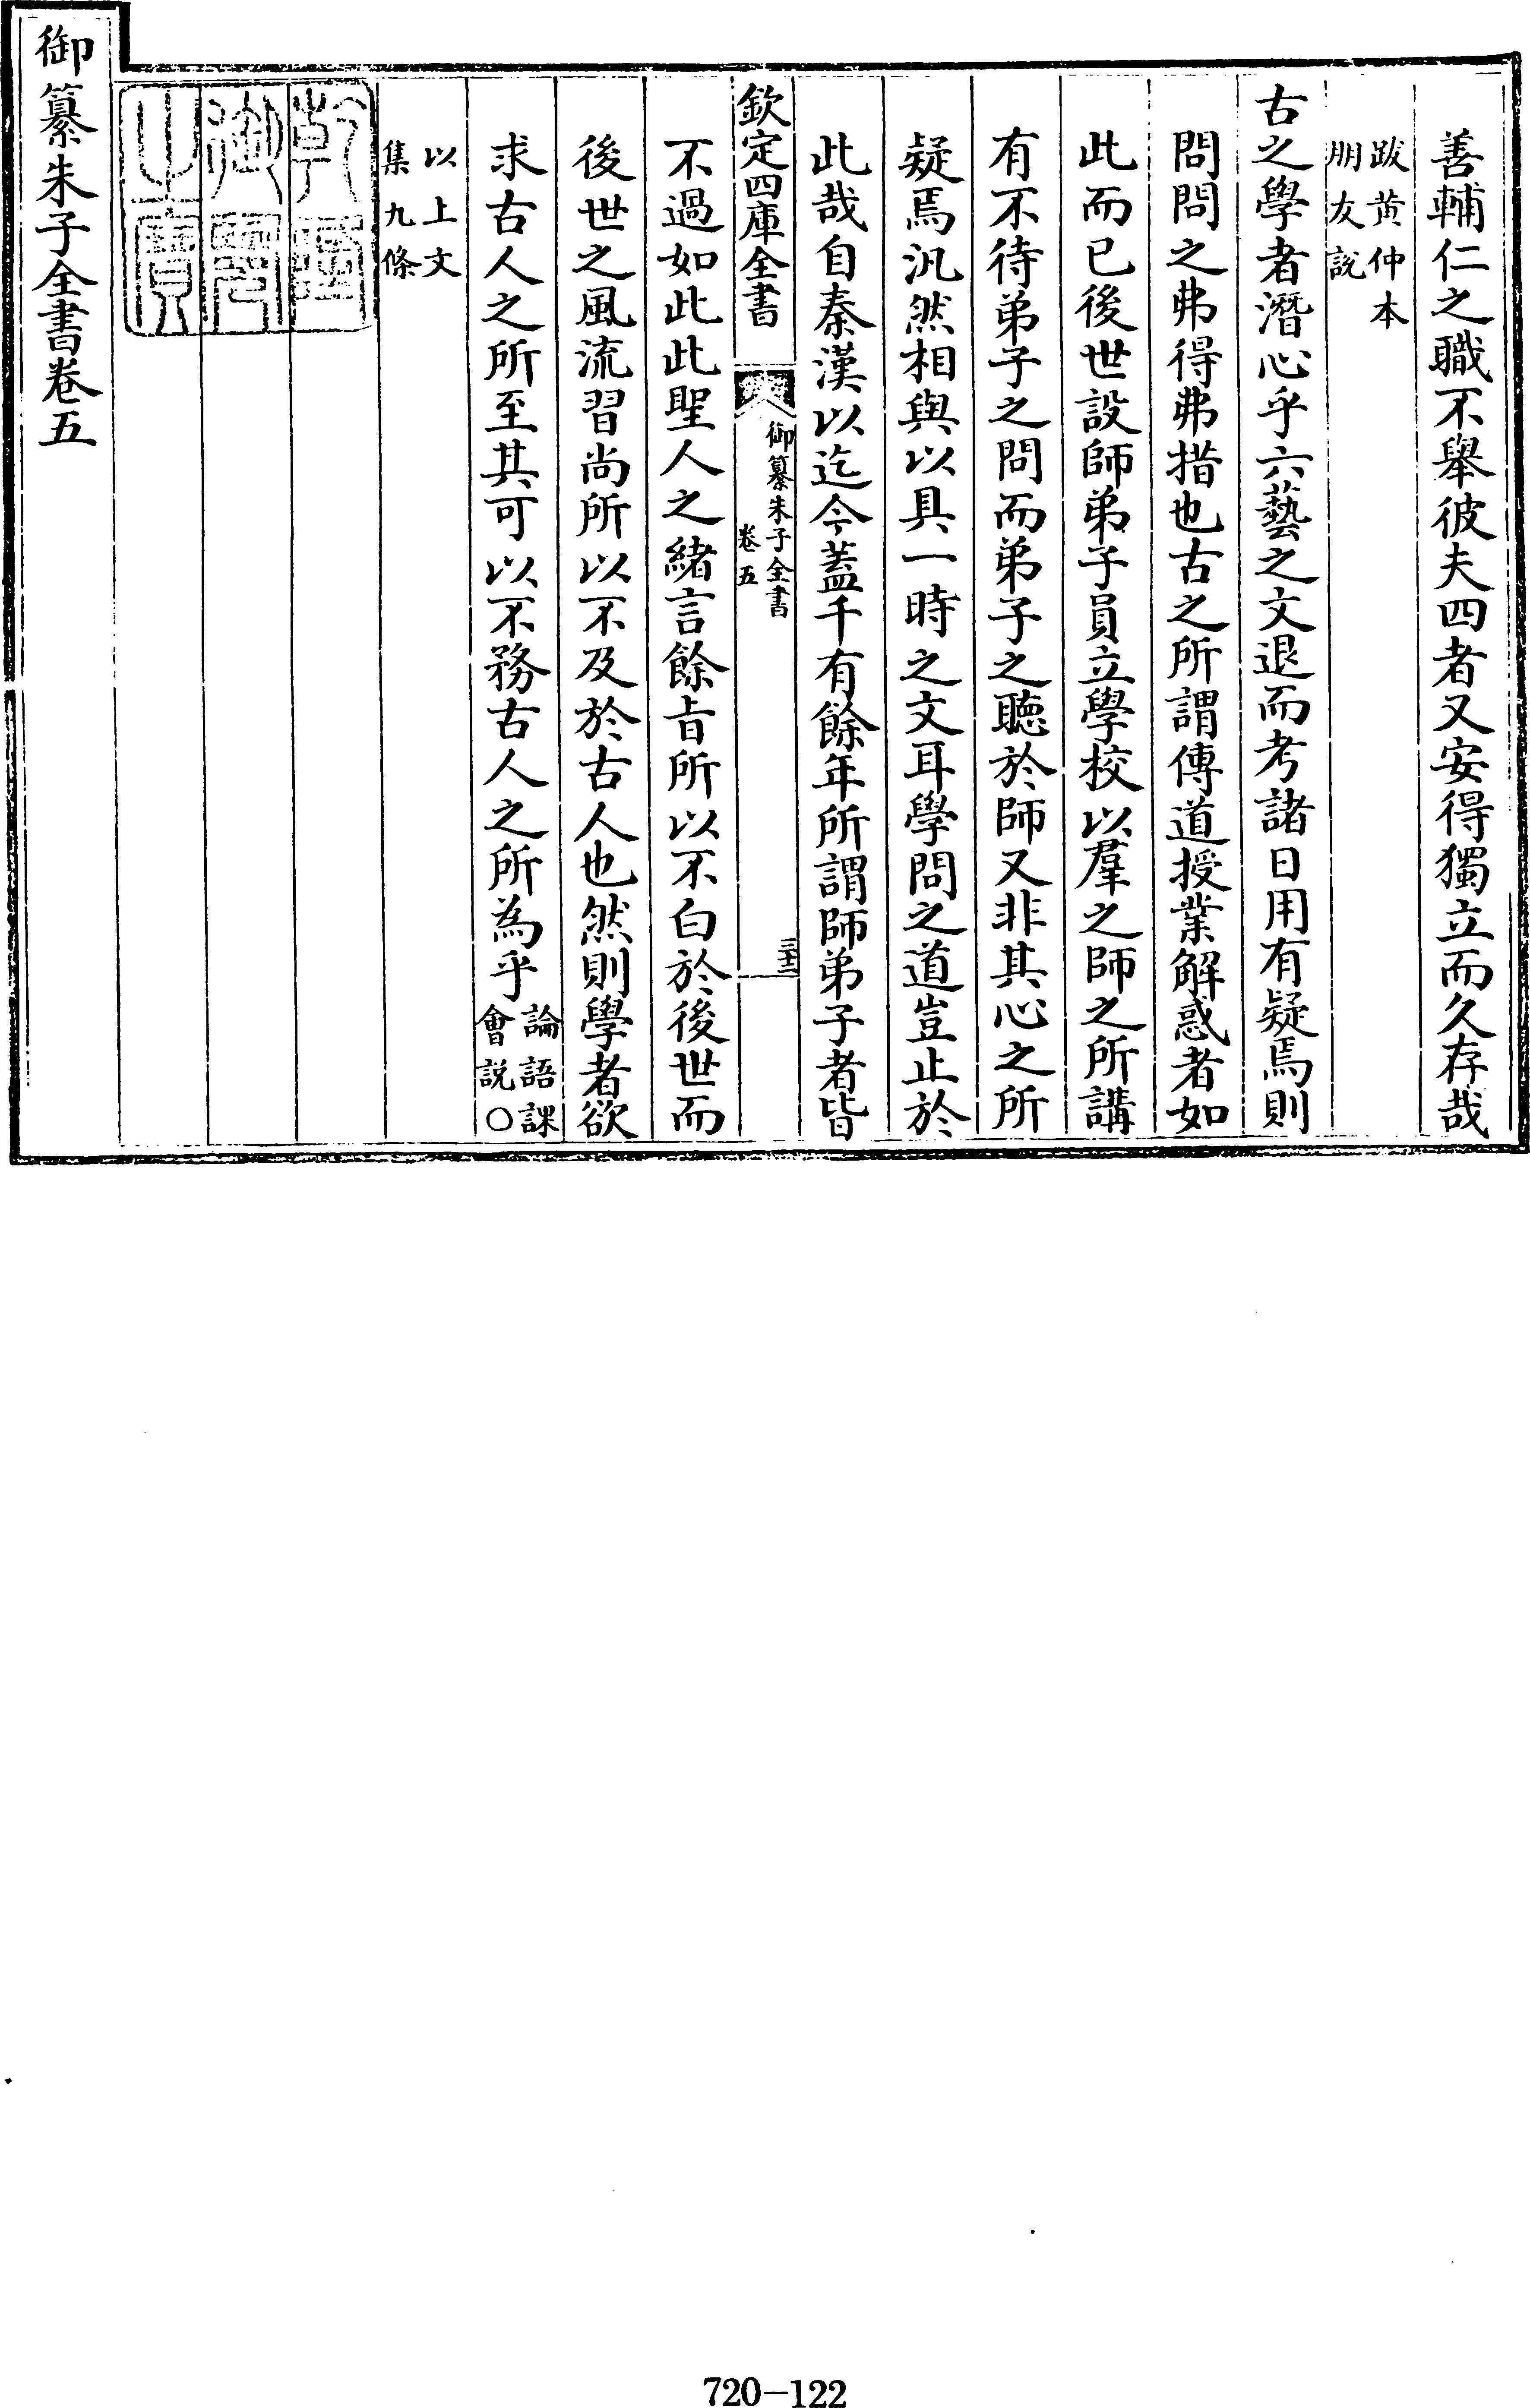 善輔仁之職不舉彼夫四者又安得獨立而久存哉
跋黄仲本
朋友説
古之學者潛心乎六藝之文退而考諸日用有疑焉則
問問之弗得弗措也古之所謂傳道授業解惑者如
此而已後世設師弟子員立學校以羣之師之所講
有不待弟子之問而弟子之聽於師又非其心之所
疑焉汎然相與以具一時之文耳學問之道豈止於
此哉自秦漢以迄今蓋千有餘年所謂師弟子者皆
欽定四庫全書
御纂朱子全書
卷五
三十三
不過如此此聖人之緒言餘㫖所以不白於後世而
後世之風流習尚所以不及於古人也然則學者欲
求古人之所至其可以不務古人之所為乎
論語課
會説〇
以上文
集九條
乾隆
御覽
之寶
御纂朱子全書卷五
720-122